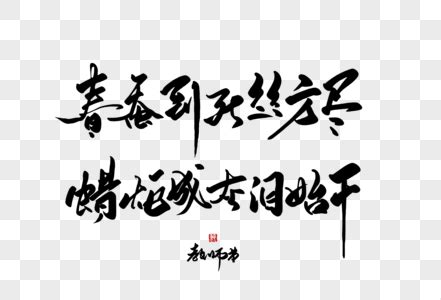 春蚕到死丝方尽
蜡炬成灰泪始干
教师节